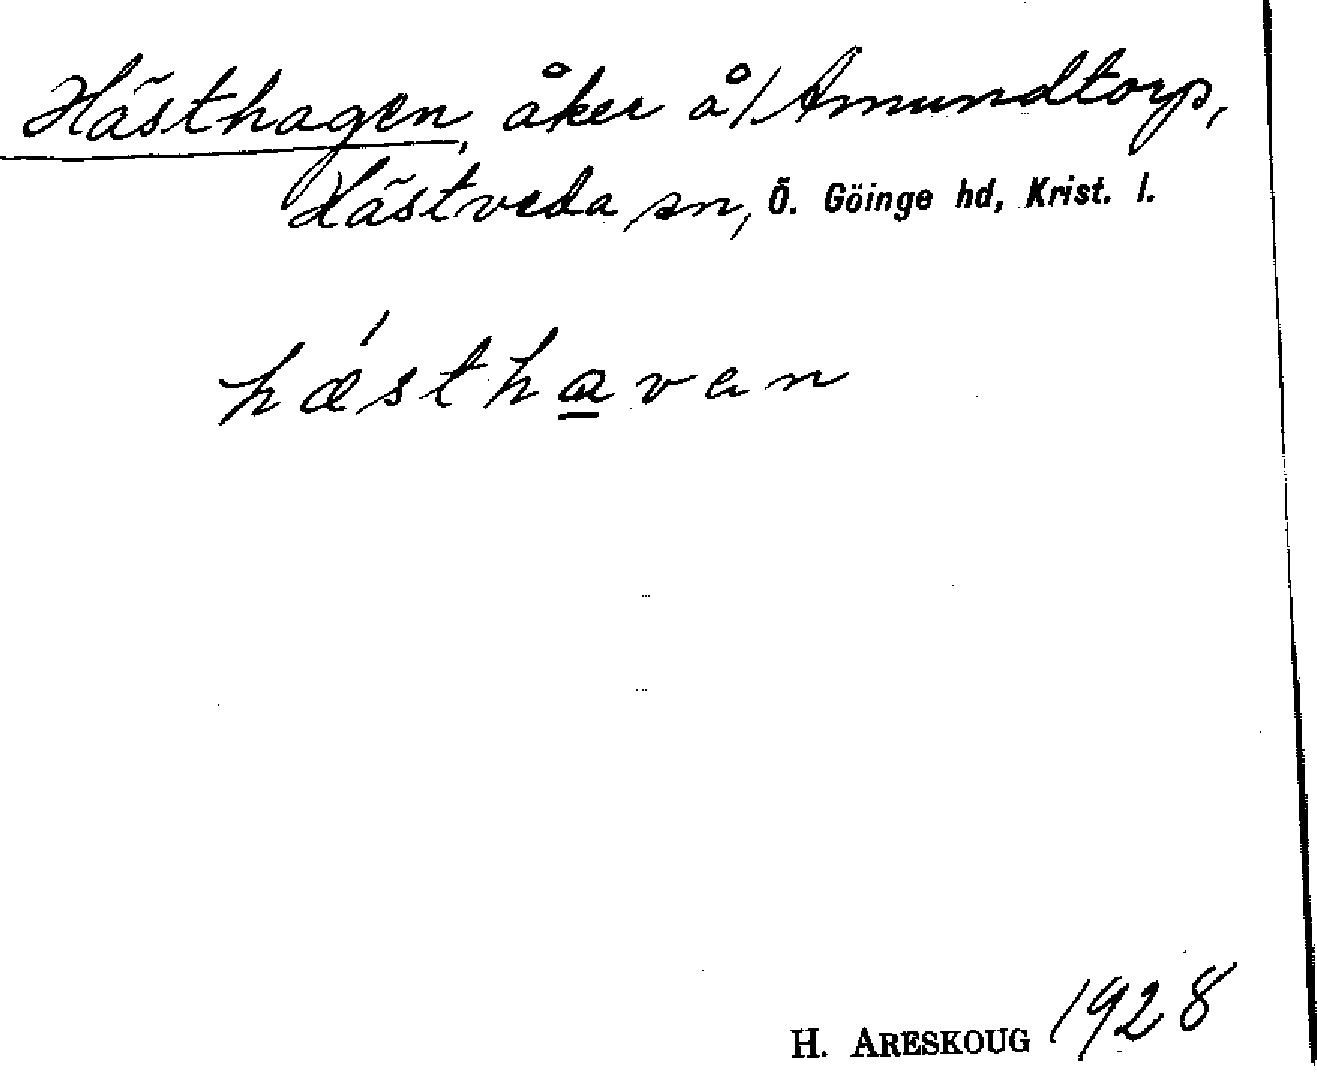 Hästhagen, åker å/ Amundtorp,
Hästveda sn, Ö. Göinge hd, Krist. l.
hæ´sthavan
H. ARESKOUG 1928